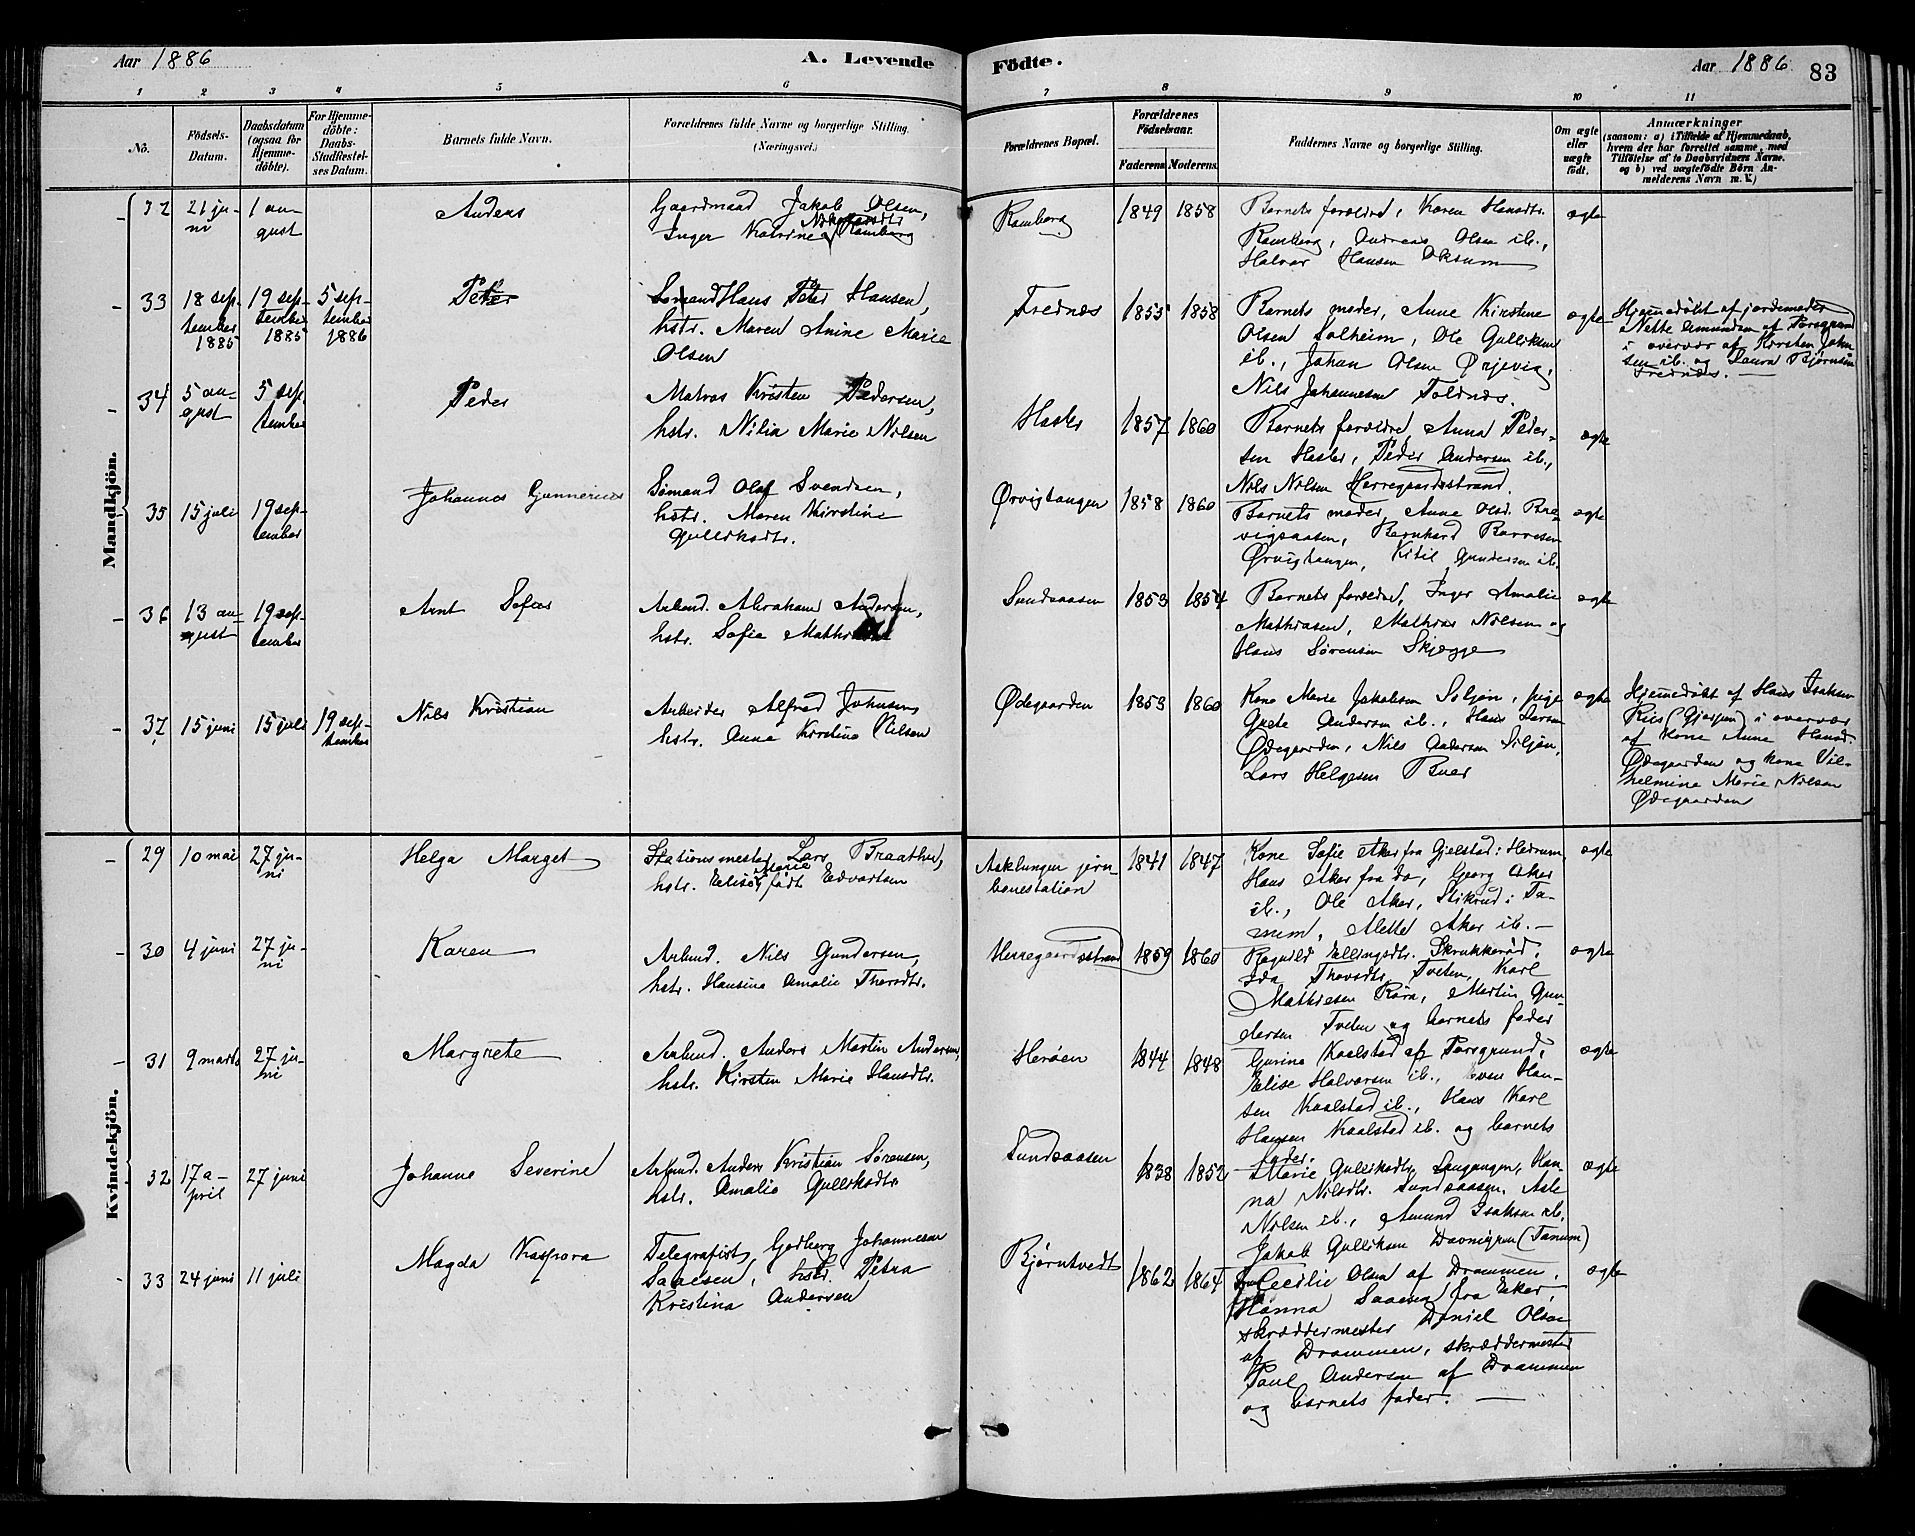 Aar 1886
A. Levende
Födte.
Aar 1886
83
1 2 3 4 5 6 7 8 9 10 11
No.
Födsels-
Datum.
Daabsdatum
(ogsaa for
Hjemme-
döbte).
For Hjemme-
döbte:
Daabs-
Stadfæstel-
ses Datum.
Barnets fulde Navn.
Forældrenes fulde Navne og borgerlige Stilling.
(Næringsvei.)
Forældrenes Bopæl.
Forældrenes
Födselsaar.
Faderens. Moderens.
Faddernes Navne og borgerlige Stilling.
Om ægte
eller
uægte
födt.
Anmærkninger
(saasom: a) i Tilfælde af Hjemmedaab,
hvem der har forrettet samme, med
Tilföielse af to Daabsvidners Navne.
og b) ved uægtefödte Börn An-
melderens Navn m. V.)
Mandkjön.
32
21 ju-
ni
1 au-
gust
Anders
Gaardmand Jakob Olsen,
Inger Katrine Ramberg
Ramberg
1849 1858
Barnets forældre, Karen Hansdtr.
Ramberg, Andreas Olsen ib.,
Halvor Hansen Oksum
ægte
33
18 sep-
tember
1885
19 sep-
tember
1885
5 sep-
tember
1886
Peter
Sømand Hans Peter Hansen,
hstr. Maren Anine Marie
Olsen
Frednes
1855 1858
Barnets moder, Anne Kirstine
Olsen Solheim, Ole Gulliksen
ib., Johan Olsen Ørjevig,
Nils Johannesen Toldnes.
ægte
Hjemmedøbt af jordemoder
Nette Amundsen af Porsgrund
i overvær af Kirsten John-
sen ib. og Laura Bjørnsen
Frednes.
34
5 au-
gust
5 sep-
tember
Peder
Matros Kristen Pedersen,
hstr. Nilia Marie Nilsen
Hasler
1857 1860
Barnets forældre, Anna Peder-
sen Hasler, Peder Andersen ib.,
Nils Nilsen Herregaardsstrand.
ægte
35
15 juli
19 sep-
tember
Johannes Gunnerius
Sømand Olaf Svendsen,
hstr. Maren Kirstine
Gulliksdtr.
Ørvigtangen
1858 1860
Barnets moder, Anne Olsd. Bre-
vigsaasen, Bernhard
Ørvigtangen, Kitil Gundersen ib.
ægte
36
13 au-
gust
19 sep-
tember
Arnt Sofus
Arbmd. Abraham Andersen,
hstr. Sofie
Sundsaasen
1853 1854
Barnets forældre, Inger Amalie
Mathiasen, Mathias Nilsen og
Hans Sørensen Skjegge
ægte
37
15 juni
15 juli
19 sep-
tember
Nils Kristian
Arbeider Alfred Johnsen
hstr. Anne Kirstine Nilsen
Ødegaarden
1853 1860
Kone Marie Jakobsen Siljan, pige
Grete Andersen ib., Hans Larsen
Ødegaarden, Nils Andersen Siljan,
Lars Helgesen Buer
ægte
Hjemmedøbt af Hans Isaksen
Riis (Gjerpen) i overvær
af kone Anne Hansd.
Ødegaarden og kone Vil-
helmine Marie Nilsen
Ødegaarden
Kvindekjön.
29
10 mai
27 ju-
ni
Helga Marget
Stationsmester Lars Braathen,
hstr. Elise Marie født Edvartsen
Asklungen jern-
banestation
1841 1847
Kone Sofie Aker fra Gjelstad i Hedrum,
Hans Aker fra do, Georg Aker
ib., Ole Aker, i Ta-
num, Mette Aker ib.
ægte
30
4 juni
27 ju-
ni
Karen
Arbmd. Nils Gundersen,
hstr. Hansine Amalie Thorsdtr.
Herregaardsstrand
1859 1860
Ragnild Ellingsdtr. Skrukkerød,
Ida Thorsdtr. Tveten, Karl
Mathiesen Røra, Martin Gun-
dersen Tveten og barnets fader
ægte
31
9 marts
27 ju-
ni
Margrete
Arbmd. Anders Martin Andersen,
hstr. Kirsten Marie Hansdtr.
Herøen
1844 1848
Gurine Kaalstad af Porsgrund,
Elise Halvorsen ib., Even Han-
sen Kaalstad ib., Hans Karl
Hansen Kaalstad ib. og barnets
fader.
ægte
32
17 a-
pril
27 juni
Johanne Severine
Arbmd. Anders Kristian Sørensen,
hstr. Amalie Gulliksdtr.
Sundsaasen
1838 1852
Marie Gulliksdtr. Langangen, Han-
na Nilsdtr. Sundsaasen, Asle
Nilsen ib., Amund Isaksen ib.,
Jakob Gulliksen (Tanum)
ægte
33
24 juni
11 juli
Magda Kaspara
Telegrafist, Godberg Johannesen
Saaesen, hstr. Petra
Kristina Andersen
Bjørntvedt
1862 1864
Cecilie Olsen af Drammen,
Hanna Saaesen fra Eker,
skræddermester Daniel Olsen
af Drammen, skræddermester
Paul Andersen af Drammen
og barnets fader.
ægte